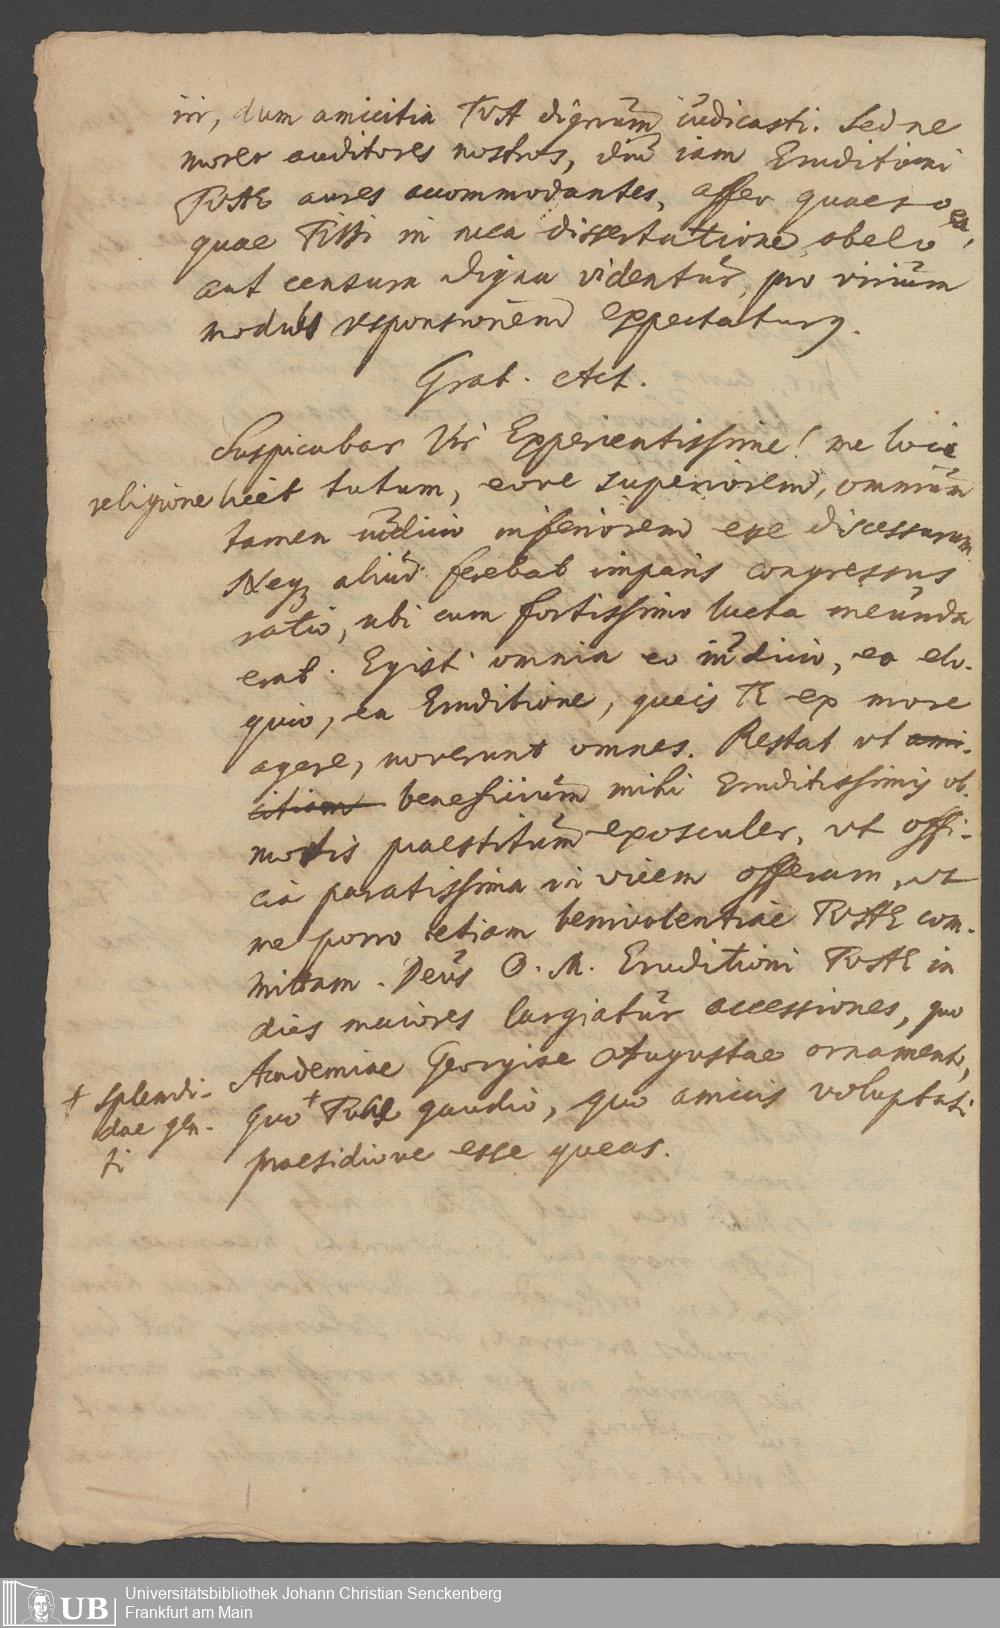 iri, dum amicitia TVA dignum iudicasti. Sed ne
morer auditores nostros, diu iam Eruditioni
TVAE aures accommodantes, affer quaeso ea,
quae TIBI in mea dissertatione obelo
aut censura digna videntur, pro virium
modulo responsionem expectaturus.
Grat. Act.
Suspicabar Vir Experientissime! me loci
religione licet tutum, eove superiorem, omnium
tamen iudicio inferiorem esse discessurum
Neque aliud ferebat imparis congressus
ratio, ubi cum fortissimo lucta ineunda
erat. Egisti omnia eo iudicio, ea elo-
quio, ea Eruditione, queis TE ex more
agere, noverunt omnes. Restat vt ami-
citiam beneficium mihi Eruditissimis
motis praestitum exosculer, vt offi-
cia paratissima in vicem offeram, vt
me porro etiam benivolentiae TVAE com-
mittam. Deus O. M. Eruditioni TVAE in
dies maiores largiatur accessiones, quo
Academiae Georgiae Augustae ornamento,
+ splendi-
dae gen-
ti
quo + TVAE gaudio, quo amicis voluptati
praesidiove esse queas.
UB
Universitätsbibliothek Johann Christian Senckenberg
Frankfurt am Main